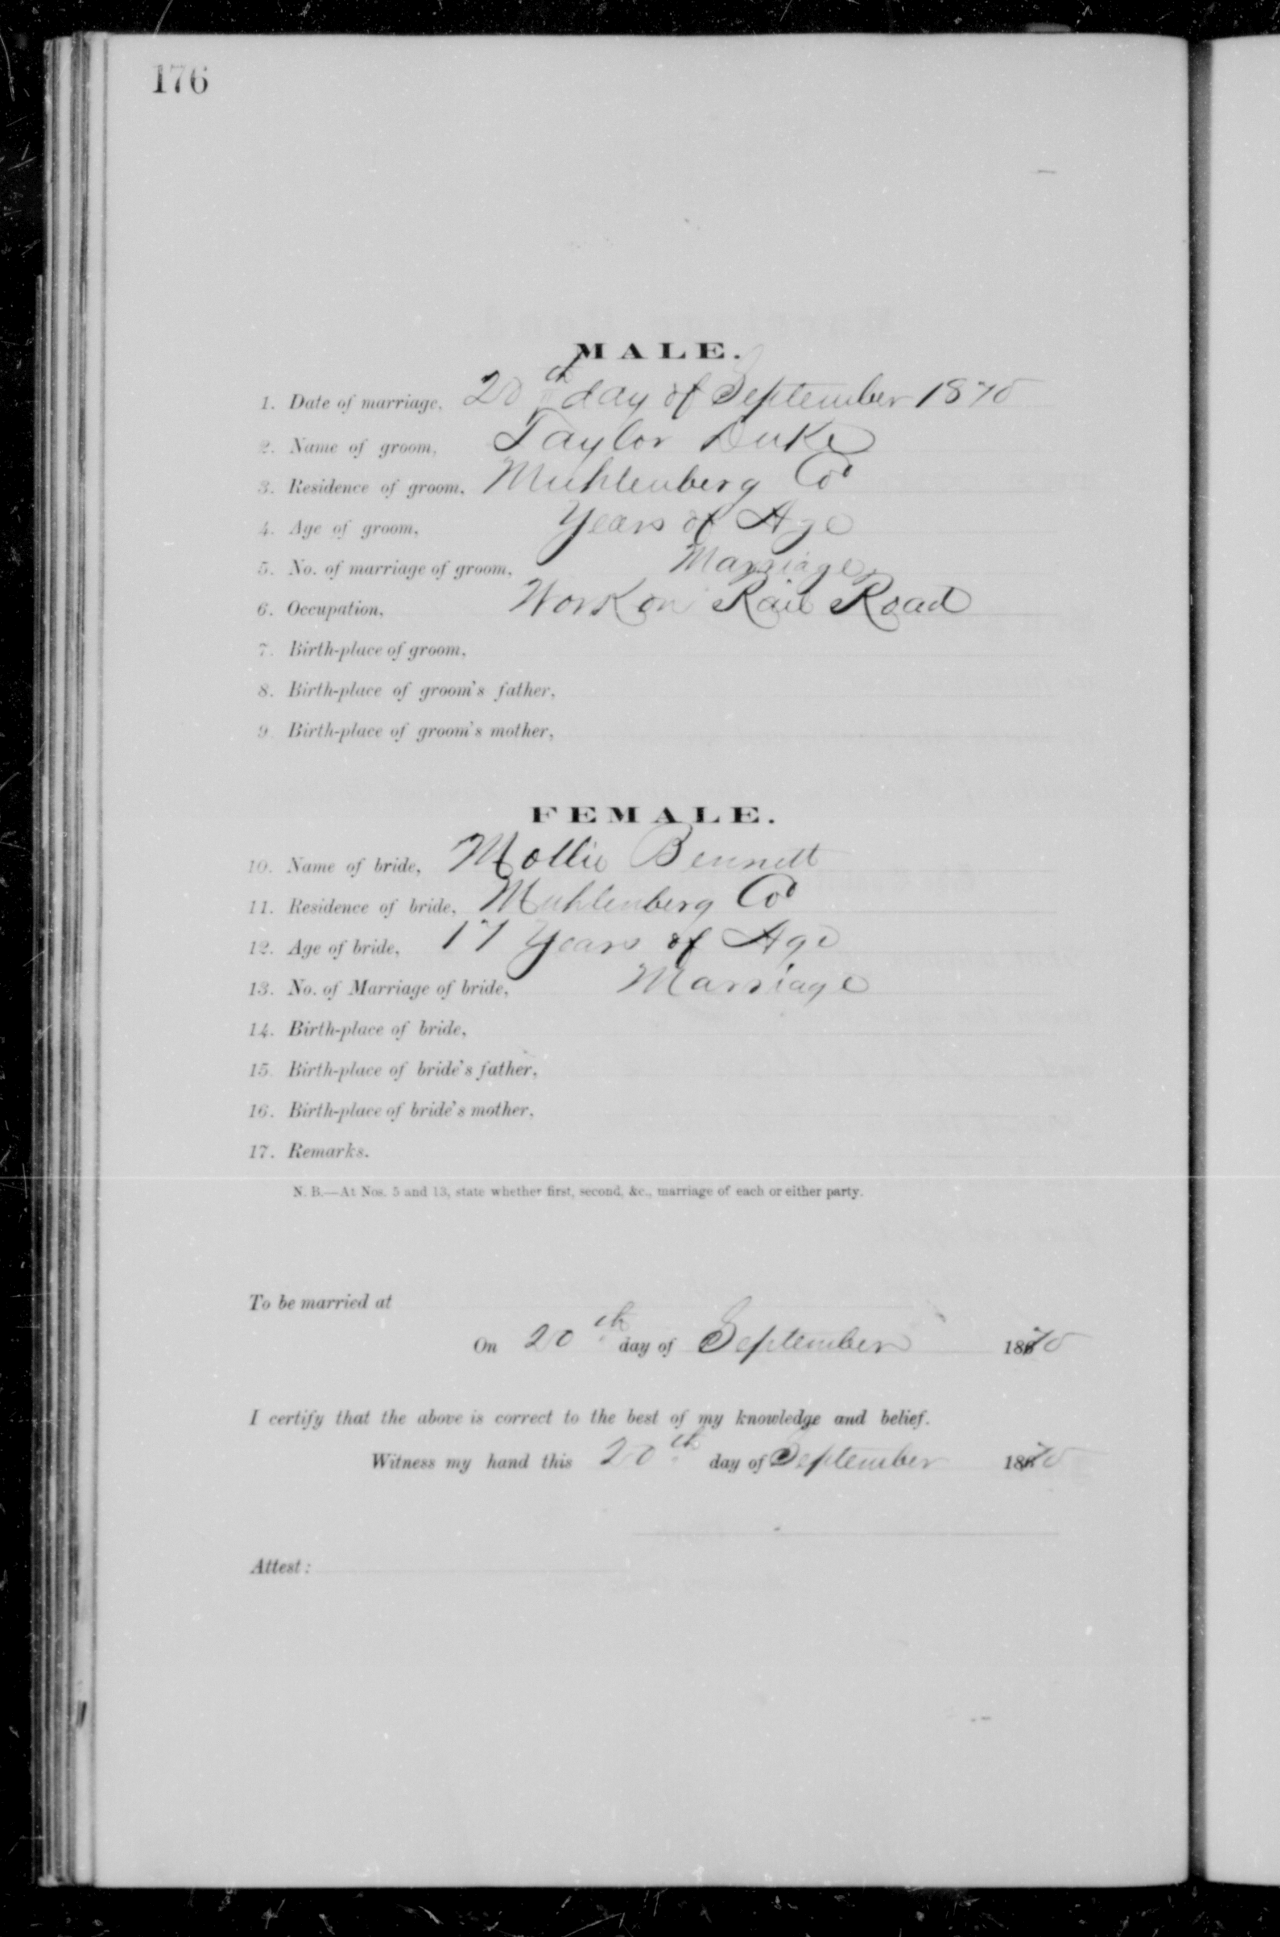 176
MALE.
1. Date of marriage, 20th day of September 1870
2. Name of groom, Taylor Duke
3. Residence of groom, Muhlenberg Co
4. Age of groom, Years of Age
5. No. of marriage of groom, Marriage
6. Occupation, Work on Rail Road
7. Birth-place of groom,
8. Birth-place of groom's father,
9. Birth-place of groom's mother,
FEMALE.
10. Name of bride, Mollie Bennett
11. Residence of bride, Muhlenberg Co
12. Age of bride, 17 Years of Age
13. No. of Marriage of bride, Marriage
14. Birth-place of bride,
15. Birth-place of bride's father,
16. Birth-place of bride's mother,
17. Remarks.
N. B.—At Nos. 5 and 13, state whether first, second, &c., marriage of each or either party.
To be married at
On 20th day of September 1870
I certify that the above is correct to the best of my knowledge and belief.
Witness my hand this 20th day of September 1870
Attest: